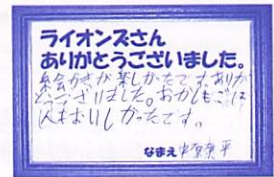 ライオンズさん
ありがとうございました。
絵かきが楽しかったです。ありが
とうございました。おかしもごは
んもおいしかったです。
なまえ 平